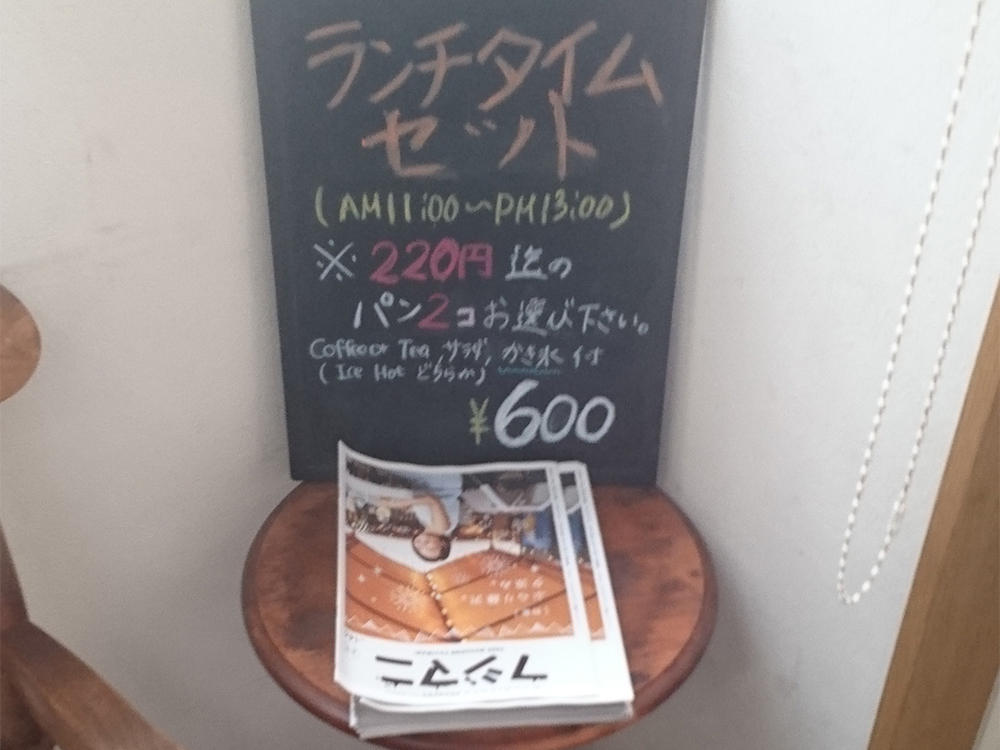 ランチタイム
セット
(AM11:00〜PM13:00)
※220円迄の
パン2コお選び下さい。
Coffee or Tea, サラダ, かき氷 付
(Ice Hot どちらか)
¥600
フジマニ